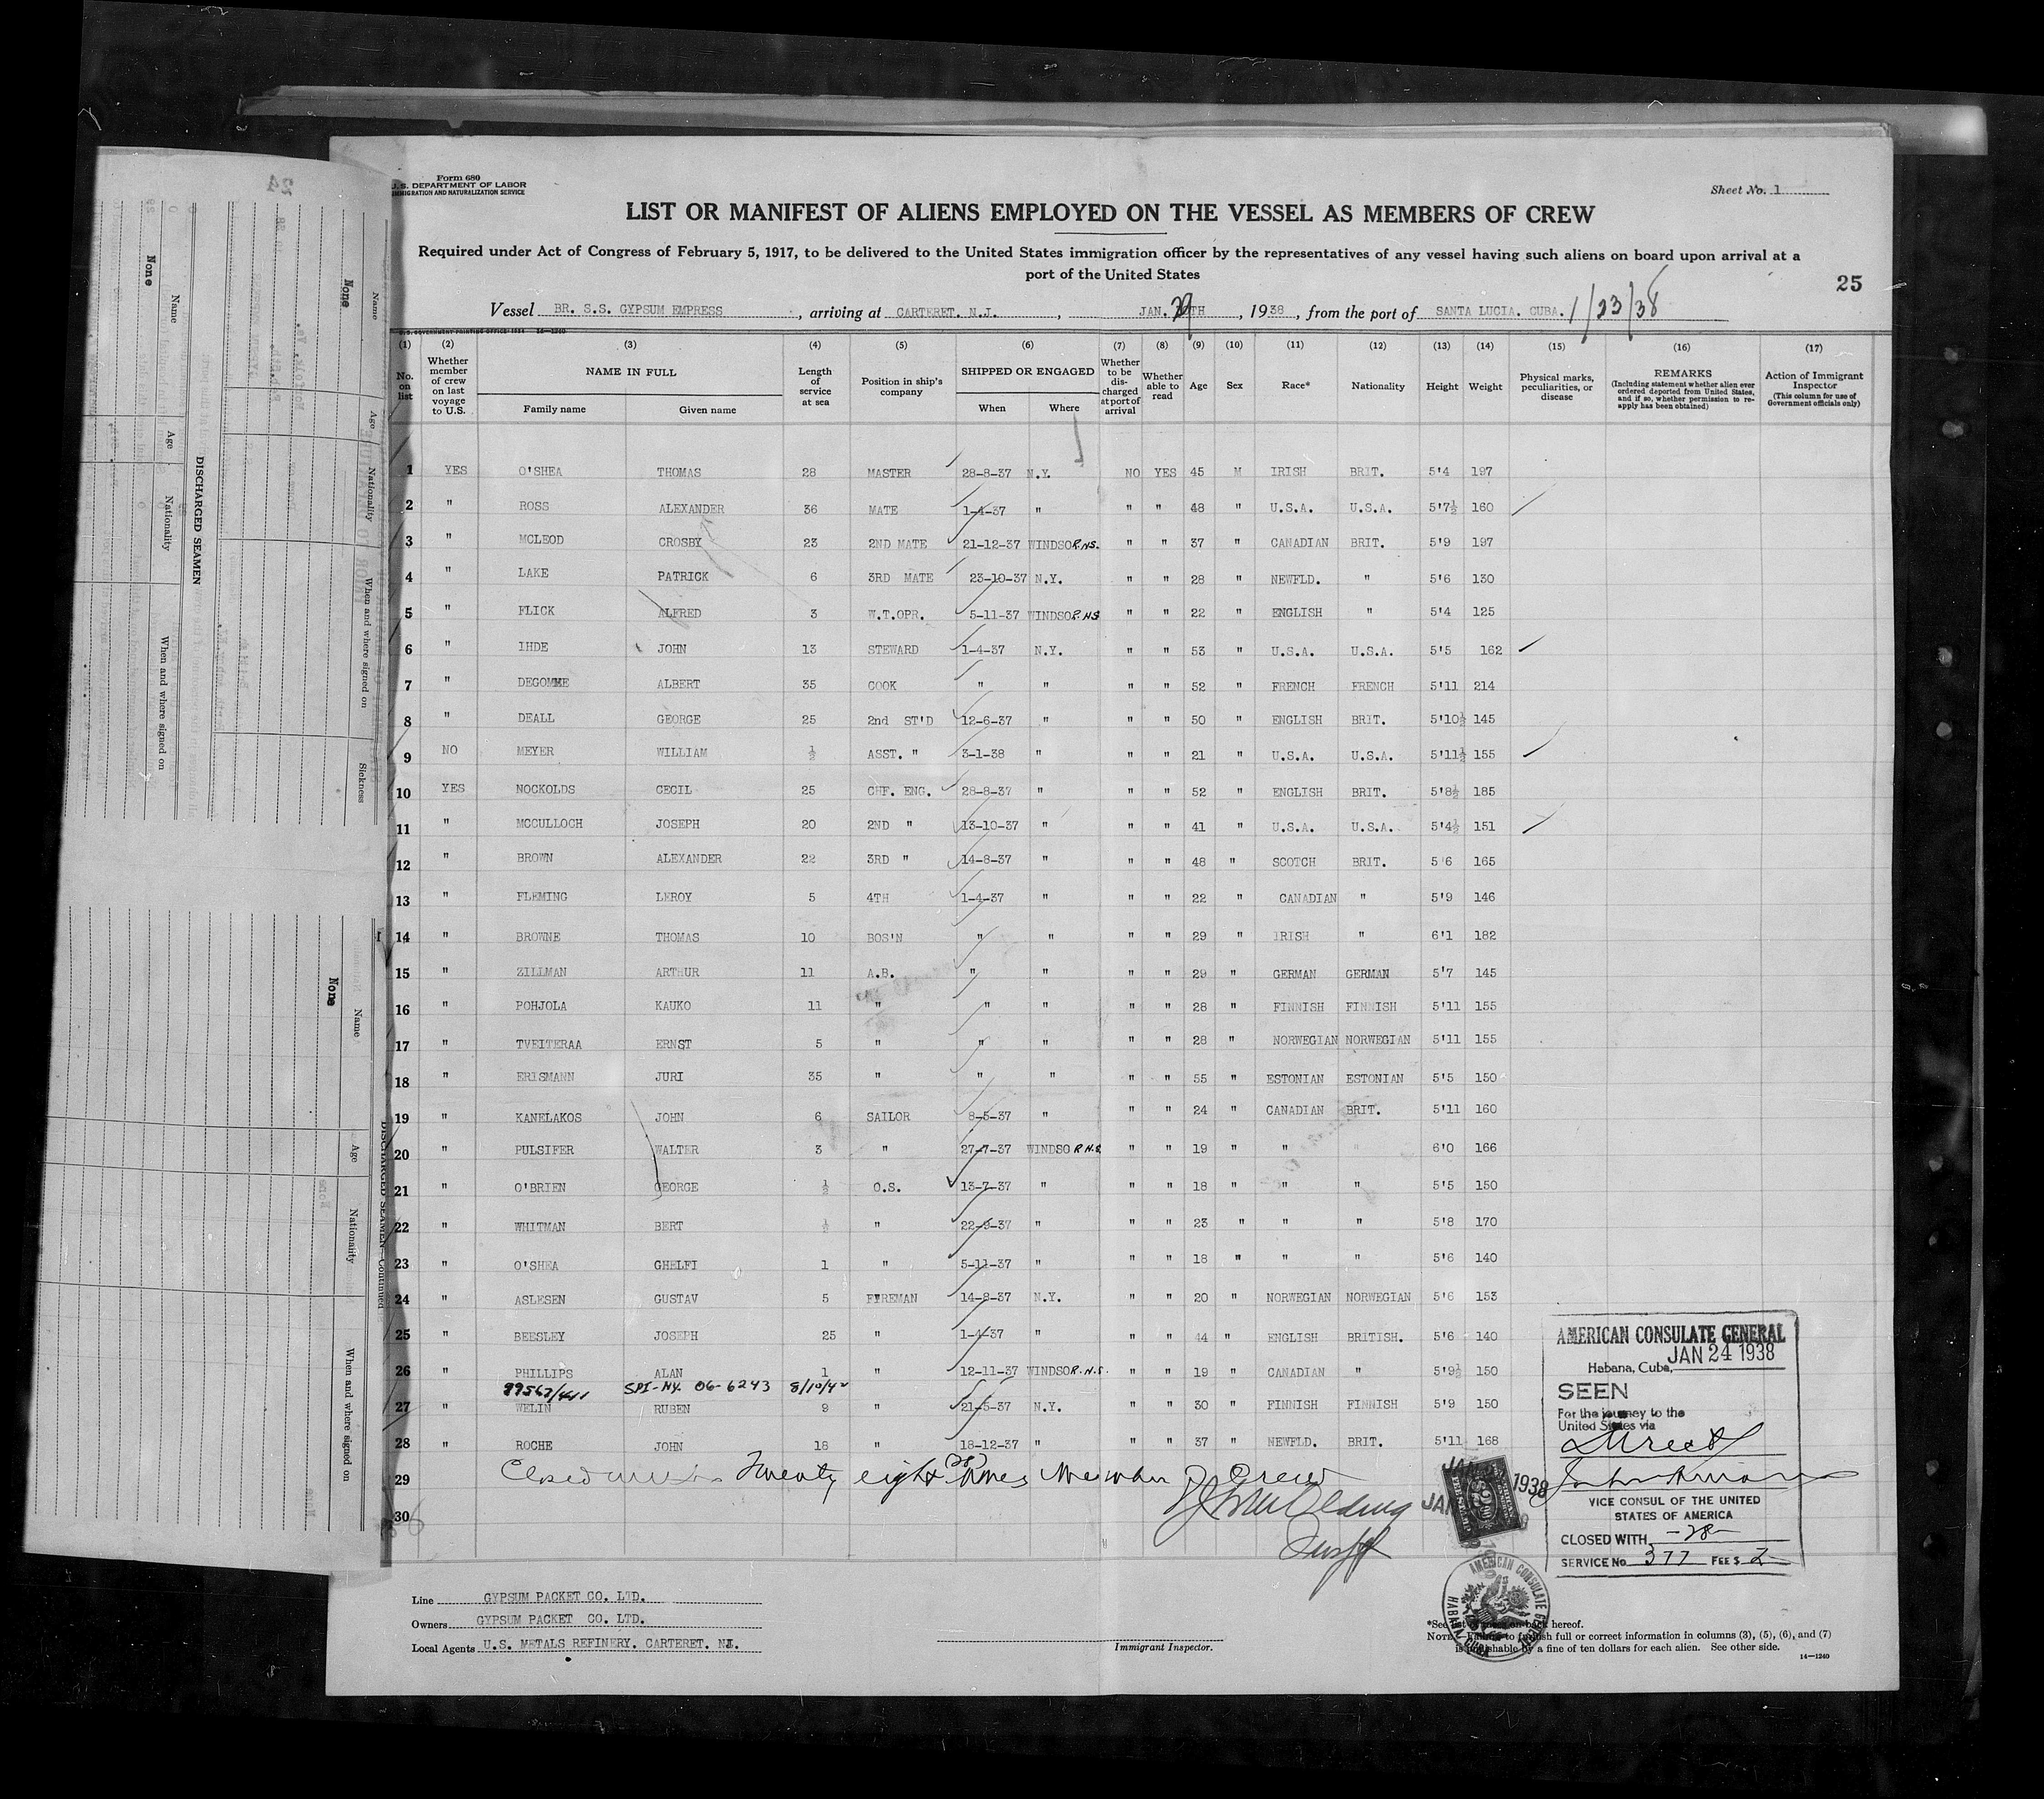 Form 680
U.S. DEPARTMENT OF LABOR
IMMIGRATION AND NATURALIZATION SERVICE
Sheet No. 1
LIST OR MANIFEST OF ALIENS EMPLOYED ON THE VESSEL AS MEMBERS OF CREW
Required under Act of Congress of February 5, 1917, to be delivered to the United States immigration officer by the representatives of any vessel having such aliens on board upon arrival at a
port of the United States
25
Vessel BR. S.S. GYPSUM EMPRESS, arriving at CARTERET. N.J., JAN. 29TH, 1938, from the port of SANTA LUCIA. CUBA. 1/23/38
(1) (2) (3) (4) (5) (6) (7) (8) (9) (10) (11) (12) (13) (14) (15) (16) (17)
No. on list
Whether member of crew on last voyage to U.S.
NAME IN FULL
Family name Given name
Length of service at sea
Position in ship's company
SHIPPED OR ENGAGED
When Where
Whether to be discharged at port of arrival
Whether able to read
Age Sex Race* Nationality Height Weight
Physical marks, peculiarities, or disease
REMARKS
(Including statement whether alien ever ordered deported from United States, and if so, whether permission to reapply has been obtained)
Action of Immigrant Inspector
(This column for use of Government officials only)
1 YES O'SHEA THOMAS 28 MASTER 28-8-37 N.Y. NO YES 45 M IRISH BRIT. 5'4 197
2 " ROSS ALEXANDER 36 MATE 1-4-37 " " " 48 " U.S.A. U.S.A. 5'7½ 160
3 " MCLEOD CROSBY 23 2ND MATE 21-12-37 WINDSOR.NS. " " 37 " CANADIAN BRIT. 5'9 197
4 " LAKE PATRICK 6 3RD MATE 23-10-37 N.Y. " " 28 " NEWFLD. " 5'6 130
5 " FLICK ALFRED 3 W.T.OPR. 5-11-37 WINDSOR.NS " " 22 " ENGLISH " 5'4 125
6 " IHDE JOHN 13 STEWARD 1-4-37 N.Y. " " 53 " U.S.A. U.S.A. 5'5 162
7 " DEGOMME ALBERT 35 COOK " " " " 52 " FRENCH FRENCH 5'11 214
8 " DEALL GEORGE 25 2nd ST'D 12-6-37 " " " 50 " ENGLISH BRIT. 5'10½ 145
9 NO MEYER WILLIAM ½ ASST. " 3-1-38 " " " 21 " U.S.A. U.S.A. 5'11½ 155
10 YES NOCKOLDS CECIL 25 CHF. ENG. 28-8-37 " " " 52 " ENGLISH BRIT. 5'8½ 185
11 " MCCULLOCH JOSEPH 20 2ND " 13-10-37 " " " 41 " U.S.A. U.S.A. 5'4½ 151
12 " BROWN ALEXANDER 22 3RD " 14-8-37 " " " 48 " SCOTCH BRIT. 5'6 165
13 " FLEMING LEROY 5 4TH 1-4-37 " " " 22 " CANADIAN " 5'9 146
14 " BROWNE THOMAS 10 BOS'N " " " " 29 " IRISH " 6'1 182
15 " ZILLMAN ARTHUR 11 A.B. " " " " 29 " GERMAN GERMAN 5'7 145
16 " POHJOLA KAUKO 11 " " " " " 28 " FINNISH FINNISH 5'11 155
17 " TVEITERAA ERNST 5 " " " " " 28 " NORWEGIAN NORWEGIAN 5'11 155
18 " ERISMANN JURI 35 " " " " " 55 " ESTONIAN ESTONIAN 5'5 150
19 " KANELAKOS JOHN 6 SAILOR 8-5-37 " " " 24 " CANADIAN BRIT. 5'11 160
20 " PULSIFER WALTER 3 " 27-7-37 WINDSOR N.S. " " 19 " " " 6'0 166
21 " O'BRIEN GEORGE ½ O.S. 13-7-37 " " " 18 " " " 5'5 150
22 " WHITMAN BERT ½ " 22-9-37 " " " 23 " " " 5'8 170
23 " O'SHEA GHELFI 1 " 5-11-37 " " " 18 " " " 5'6 140
24 " ASLESEN GUSTAV 5 FIREMAN 14-8-37 N.Y. " " 20 " NORWEGIAN NORWEGIAN 5'6 153
25 " BEESLEY JOSEPH 25 " 1-4-37 " " " 44 " ENGLISH BRITISH. 5'6 140
26 " PHILLIPS ALAN 1 " 12-11-37 WINDSOR.N.S. " " 19 " CANADIAN " 5'9½ 150
SPI-NY. 06-6243 8/10/42
27 " WELIN RUBEN 9 " 21-5-37 N.Y. " " 30 " FINNISH FINNISH 5'9 150
28 " ROCHE JOHN 18 " 18-12-37 " " " 37 " NEWFLD. BRIT. 5'11 168
29 Closed with Twenty eight (28) names Member of Crew
30
AMERICAN CONSULATE GENERAL
JAN 24 1938
Habana, Cuba,
SEEN
For the journey to the
United States via
Direct
VICE CONSUL OF THE UNITED
STATES OF AMERICA
CLOSED WITH -28-
SERVICE No 377 FEE $ 2
Line GYPSUM PACKET CO. LTD.
Owners GYPSUM PACKET CO. LTD.
Local Agents U.S. METALS REFINERY. CARTERET. NJ.
Immigrant Inspector.
NOTE.
full or correct information in columns (3), (5), (6), and (7)
is punishable by a fine of ten dollars for each alien. See other side.
14—1240
24
None
Name
Age
Nationality
When and where signed on
Sickness
DISCHARGED SEAMEN
None
Name
Age
Nationality
When and where signed on
DISCHARGED SEAMEN—Continued
None
Name
Age
Nationality
When and where signed on